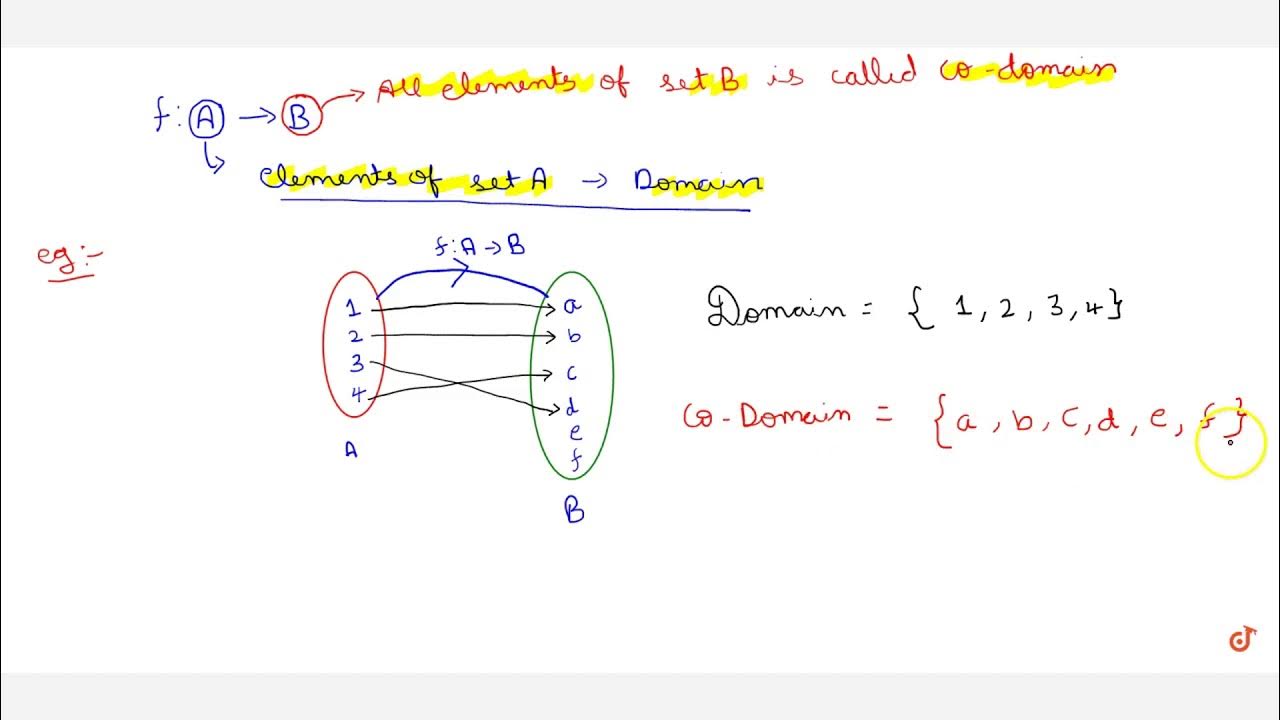 All elements of set B is called co-domain
f: A → B
elements of set A → Domain
eg:-
f: A → B
1 a
2 b
3 c
4 d
e
f
A
B
Domain = { 1, 2, 3, 4 }
co-Domain = { a, b, c, d, e, f }